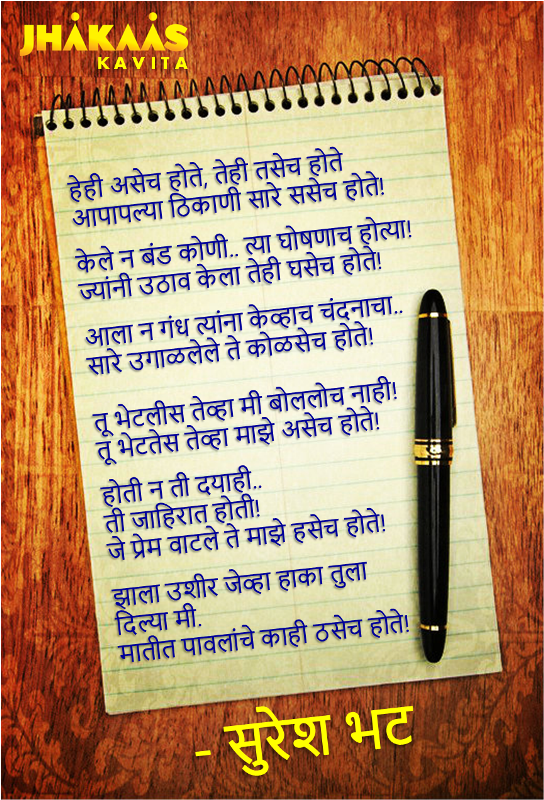 JHAKAAS
KAVITA
हेही असेच होते, तेही तसेच होते
आपापल्या ठिकाणी सारे ससेच होते!
केले न बंड कोणी.. त्या घोषणाच होत्या!
ज्यांनी उठाव केला तेही घसेच होते!
आला न गंध त्यांना केव्हाच चंदनाचा..
सारे उगाळलेले ते कोळसेच होते!
तू भेटलीस तेव्हा मी बोललोच नाही!
तू भेटतेस तेव्हा माझे असेच होते!
होती न ती दयाही..
ती जाहिरात होती!
जे प्रेम वाटले ते माझे हसेच होते!
झाला उशीर जेव्हा हाका तुला
दिल्या मी.
मातीत पावलांचे काही ठसेच होते!
- सुरेश भट